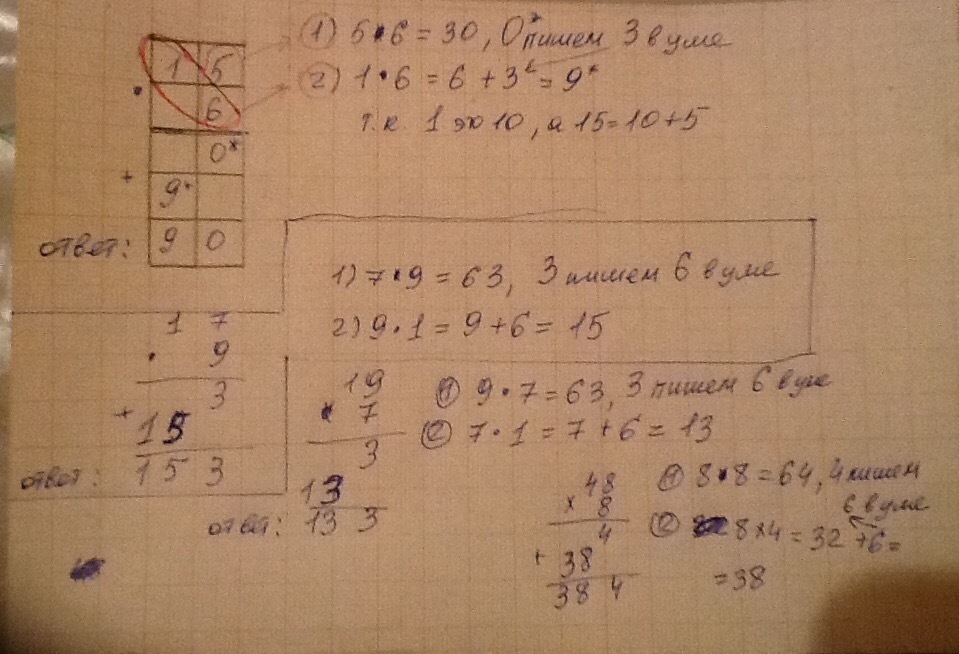 1) 5•6 = 30, 0* пишем 3 в уме
1 5
• 6
2) 1•6 = 6 + 3 = 9*
т.к. 1 это 10, а 15=10+5
0*
+ 9*
ответ: 9 0
1) 7•9 = 63, 3 пишем 6 в уме
2) 9•1 = 9+6 = 15
1 7
• 9
3
+ 15
ответ: 15 3
19
• 7
3
13
ответ: 13 3
1 9•7=63, 3 пишем 6 в уме
2 7•1 = 7+6 = 13
48
x 8
4
+ 38
38 4
1 8•8=64, 4 пишем
6 в уме
2 8x4=32+6=
=38